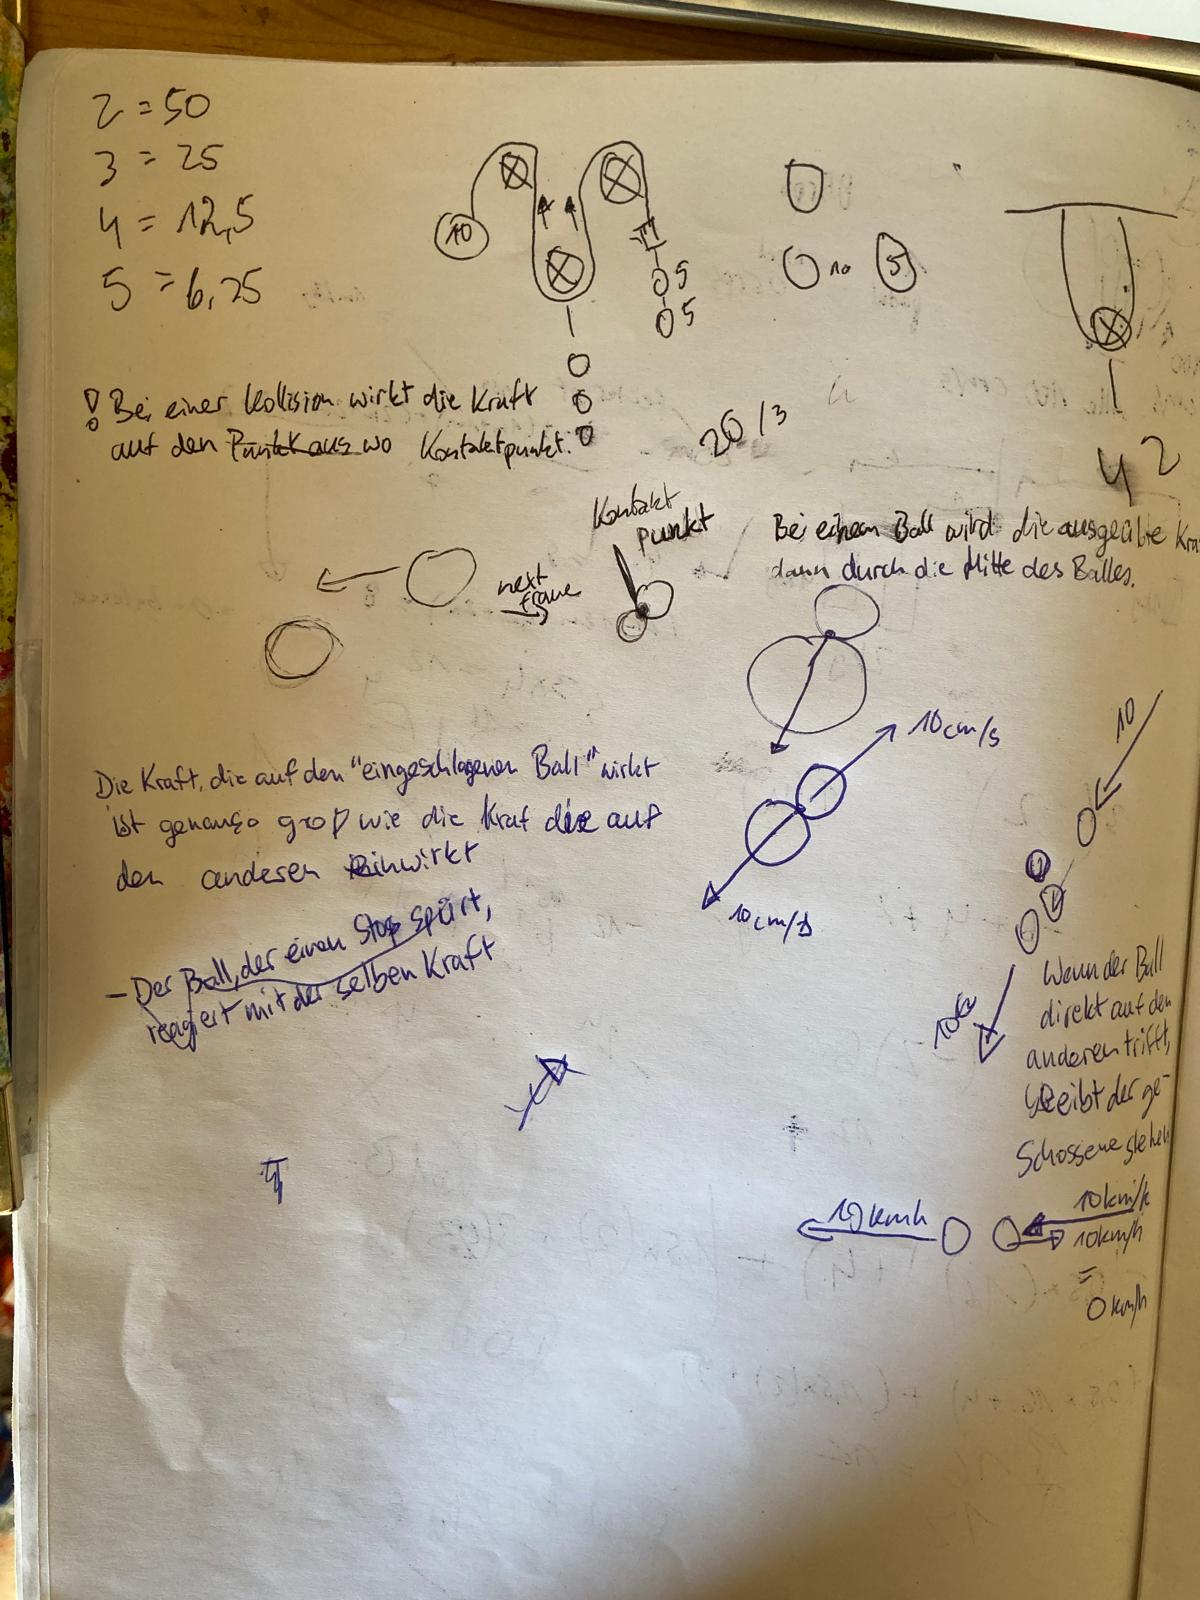 2 = 50
3 = 25
4 = 12,5
5 = 6,25
10
5
5
10
5
! Bei einer Kollision wirkt die Kraft
auf den Punkt aus wo Kontaktpunkt.
20/3
42
Kontakt
punkt
next
frame
Bei einem Ball wird die ausgeübte Kra
dann durch die Mitte des Balles.
10 cm/s
10 cm/s
10
Die Kraft, die auf den "eingeschlagenen Ball" wirkt
ist genauso groß wie die Kraf die auf
den anderen einwirkt
- Der Ball, der einen Stop spürt,
reagiert mit der selben Kraft
Wenn der Ball
direkt auf den
anderen trifft,
bleibt der ge-
schossene stehen
10 kmh
10 km/h
10 km/h
=
0 km/h